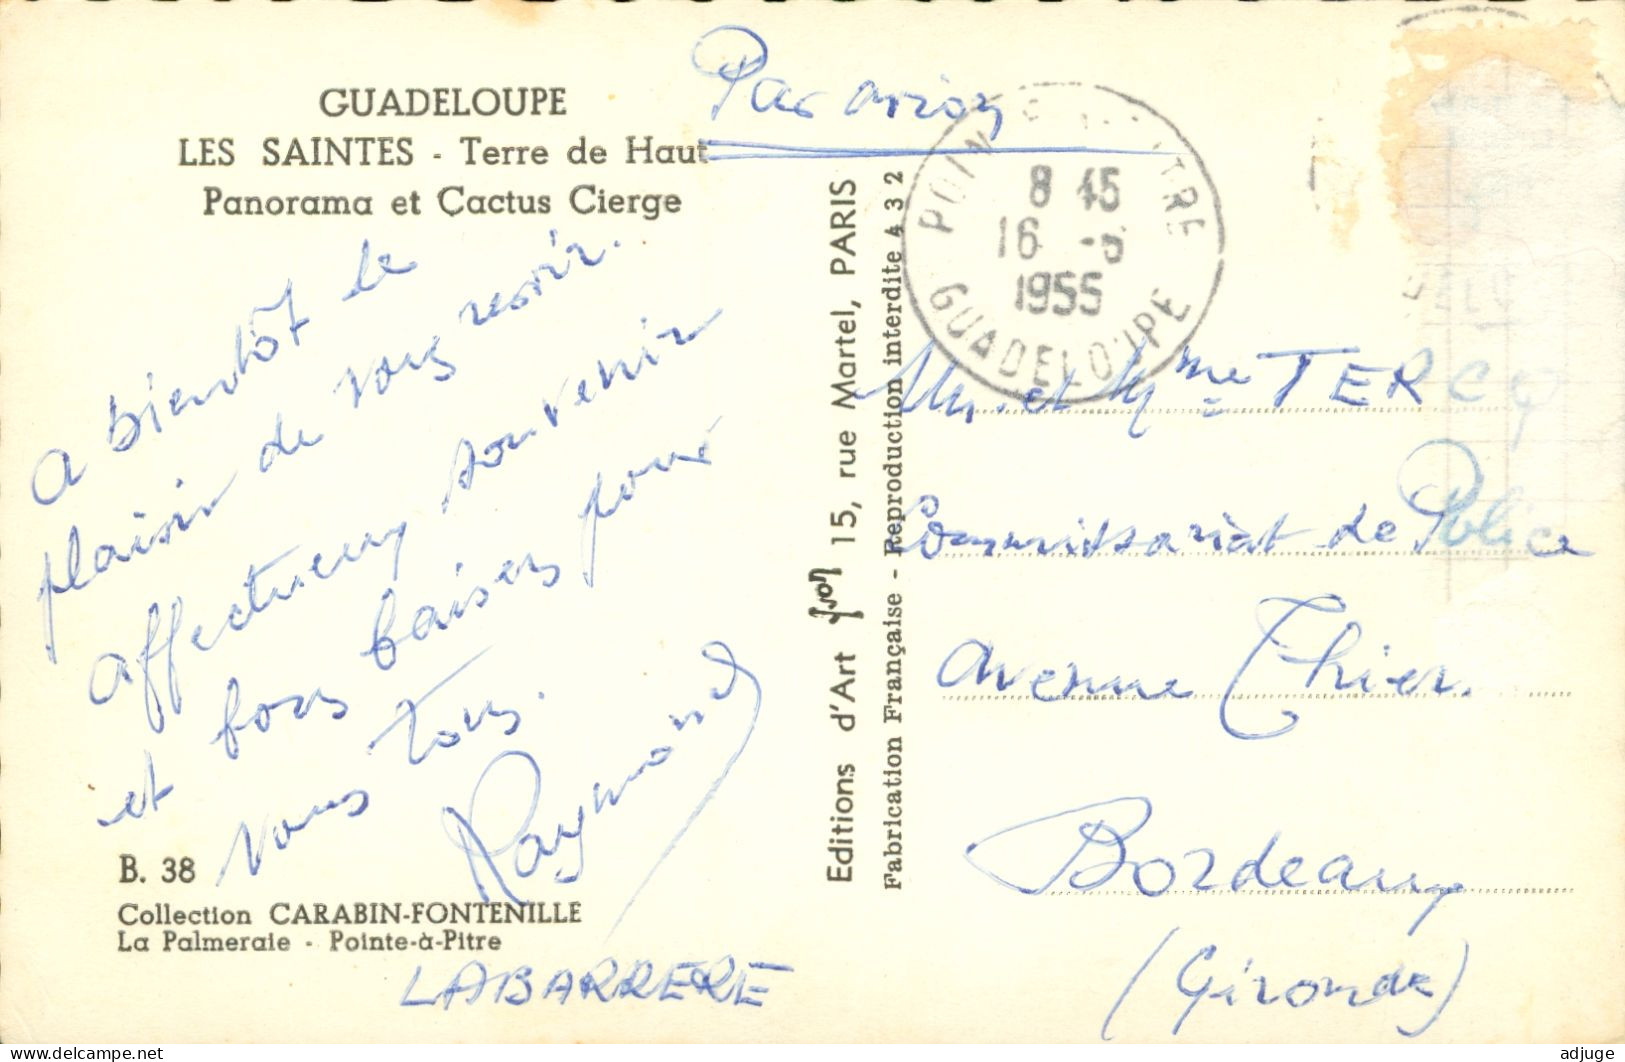 GUADELOUPE
LES SAINTES - Terre de Haut
Panorama et Cactus Cierge
a bientôt le
plaisir de vous revoir.
affectueux souvenir
et bons baisers pour
vous tous.
Raymond
LABARRERE
B. 38
Collection CARABIN-FONTENILLE
La Palmeraie - Pointe-à-Pitre
Editions d'Art yvon 15, rue Martel, PARIS
Fabrication Française - Reproduction interdite 432
Par avion
POINTE A PITRE
8 45
16 -5
1955
GUADELOUPE
Mr. et Mme TERCQ
Commissariat de Police
Avenue Thiers.
Bordeaux
(Gironde)
delcampe.net
adjuge